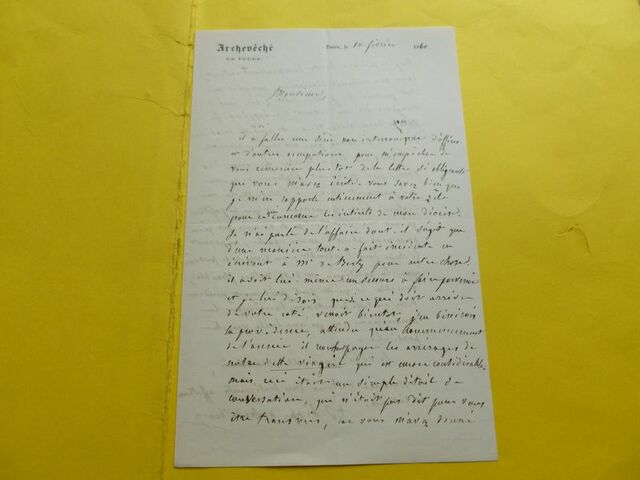 Archevêché
DE TOURS.
Tours, le 10 février 1860
Monsieur,
il a fallu une série non interrompue d'affaires
et d'autres occupations pour m'empêcher de
vous remercier plus tôt de la lettre si obligeante
que vous m'avez écrite. vous savez bien que
je m'en rapporte entièrement à votre zèle
pour ce qui concerne les intérêts de mon diocèse.
Je n'ai parlé de l'affaire dont il s'agit que
d'une manière tout-à-fait incidente en
écrivant à Mr de pour autre chose.
il avait lui même un secours à faire parvenir
et je lui disais que si ce qui doit arriver
de votre côté venoit bientôt, j'en bénirois
la providence, attendu qu'au commencement
de l'année il nous faut payer les arrérages de
notre dette viagère qui est encore considérable.
mais ceci étoit un simple détail de
conversation, qui n'étoit pas dit pour vous
être transmis, car vous m'avez donné